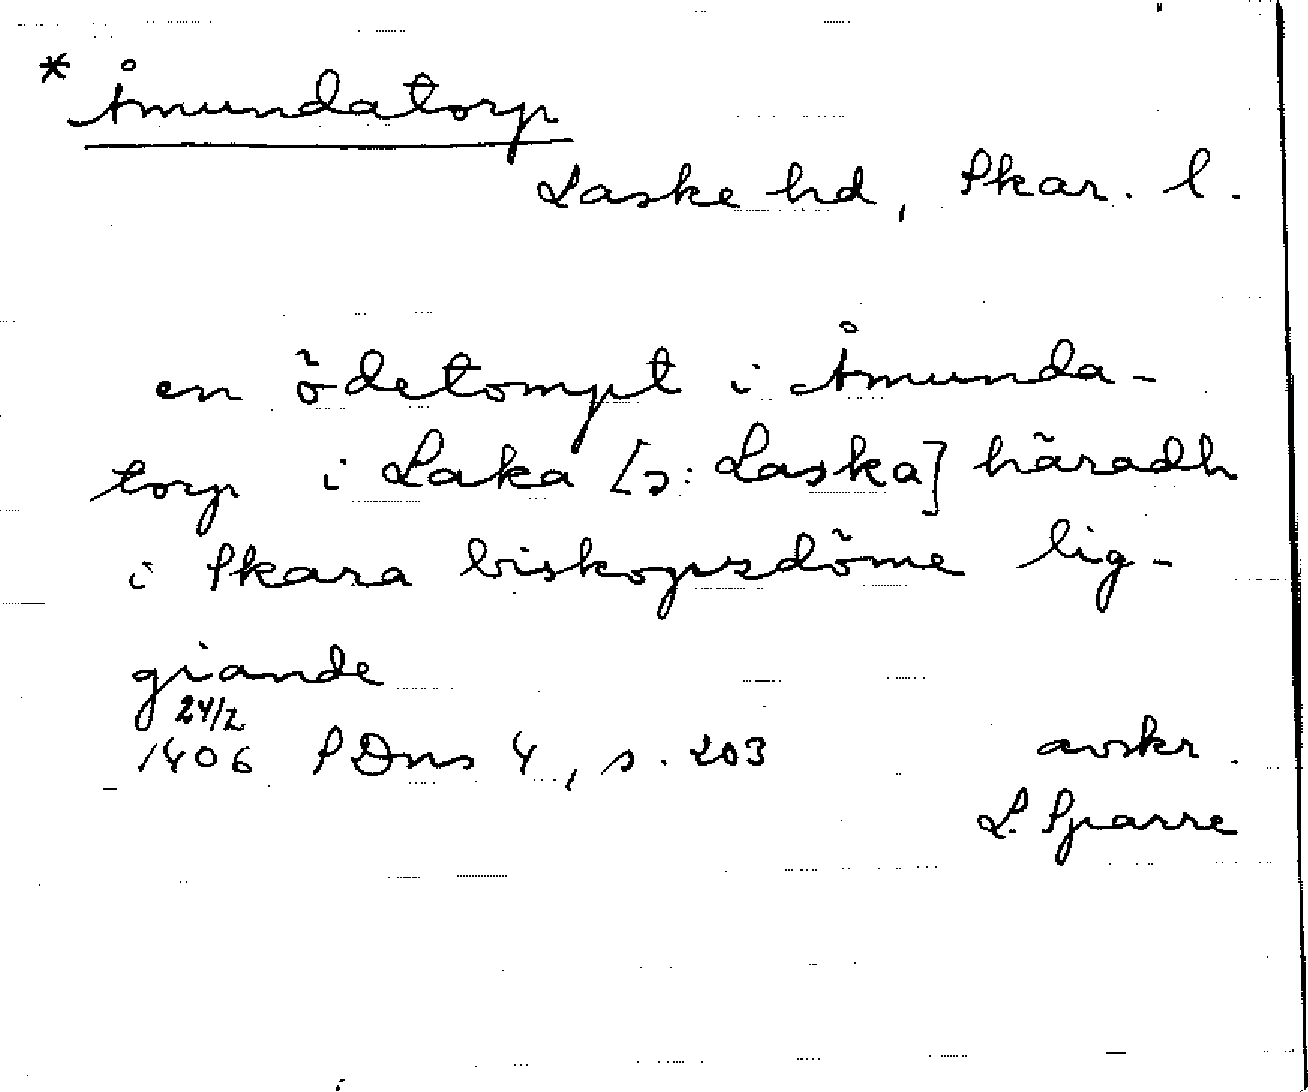 * Åmundatorp
Laske hd, Skar. l.
en ödetompt i Åmunda-
torp i Laka [ɔ: Laska] häradh
i Skara biskopsdöme lig-
giande
24/2
1406 SDns 4, s. 203 avskr.
L. Sparre